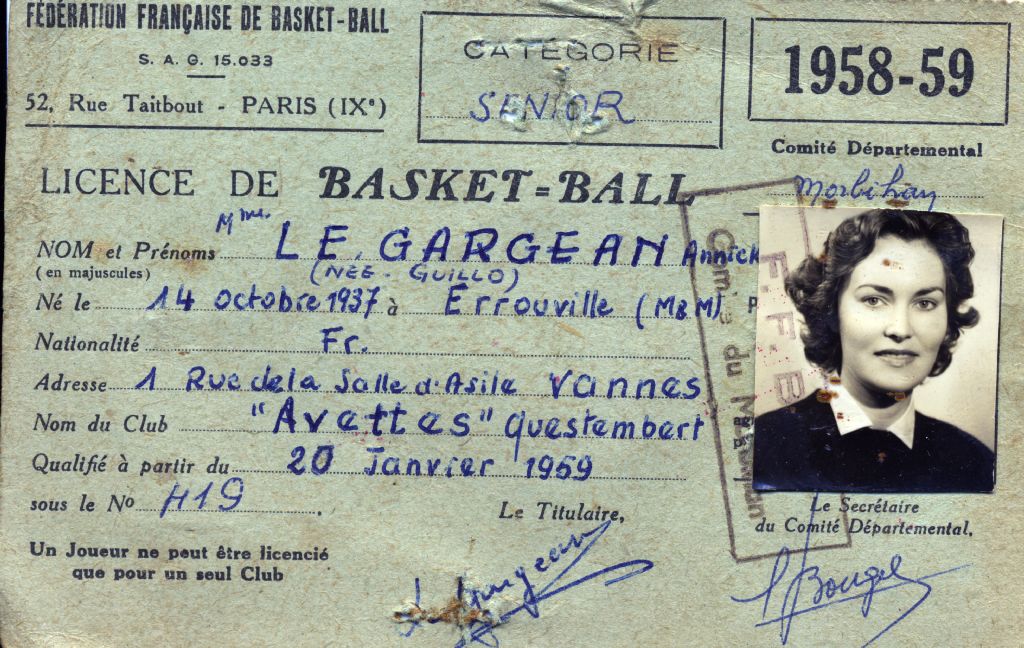 FÉDÉRATION FRANÇAISE DE BASKET-BALL
S. A. G. 15.033
52, Rue Taitbout - PARIS (IXe)
CATÉGORIE
SENIOR
1958-59
Comité Départemental
Morbihan
LICENCE DE BASKET-BALL
NOM et Prénoms Mme. LE GARGEAN Annick
(en majuscules) (NÉE - GUILLO)
Né le 14 octobre 1937 à Errouville (M&M)
Nationalité Fr.
Adresse 1 Rue de la Salle d'Asile Vannes
Nom du Club "Avettes" Questembert
Qualifié à partir du 20 Janvier 1959
sous le No 419.
Le Titulaire,
Le Secrétaire
du Comité Départemental,
Un Joueur ne peut être licencié
que pour un seul Club
F. F. B
du Morbihan